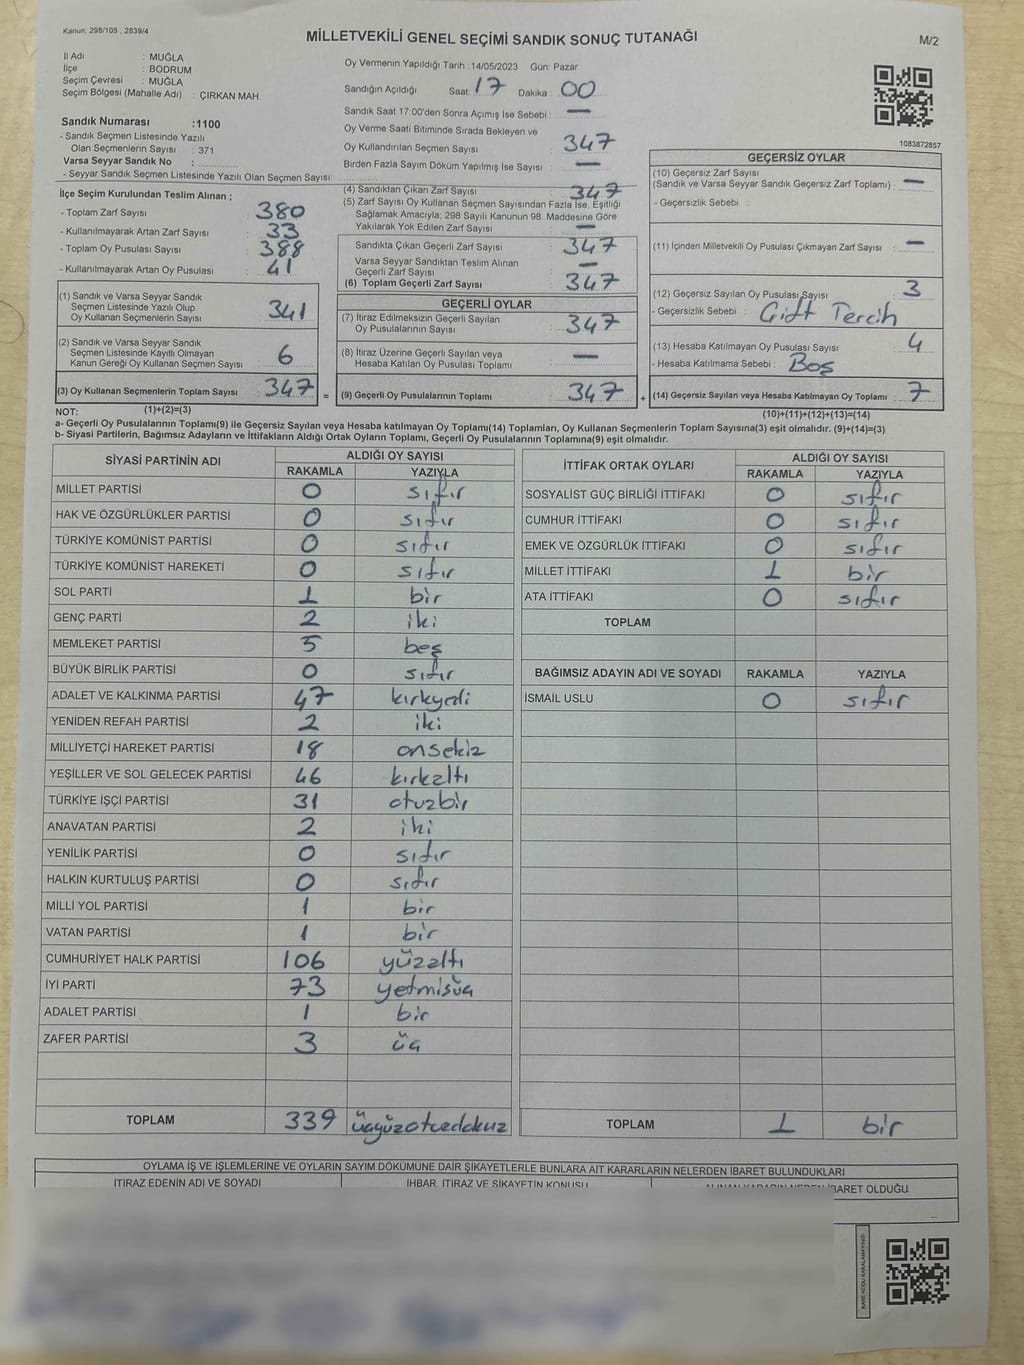 Kanun: 298/105 , 2839/4
MİLLETVEKİLİ GENEL SEÇİMİ SANDIK SONUÇ TUTANAĞI
M/2
İl Adı : MUĞLA
İlçe : BODRUM
Seçim Çevresi : MUĞLA
Seçim Bölgesi (Mahalle Adı) : ÇIRKAN MAH.
Sandık Numarası :1100
- Sandık Seçmen Listesinde Yazılı
Olan Seçmenlerin Sayısı : 371
Varsa Seyyar Sandık No :
- Seyyar Sandık Seçmen Listesinde Yazılı Olan Seçmen Sayısı:
İlçe Seçim Kurulundan Teslim Alınan ;
- Toplam Zarf Sayısı : 380
- Kullanılmayarak Artan Zarf Sayısı : 33
- Toplam Oy Pusulası Sayısı : 388
- Kullanılmayarak Artan Oy Pusulası : 41
(1) Sandık ve Varsa Seyyar Sandık
Seçmen Listesinde Yazılı Olup
Oy Kullanan Seçmenlerin Sayısı : 341
(2) Sandık ve Varsa Seyyar Sandık
Seçmen Listesinde Kayıtlı Olmayan
Kanun Gereği Oy Kullanan Seçmen Sayısı : 6
(3) Oy Kullanan Seçmenlerin Toplam Sayısı : 347 =
Oy Vermenin Yapıldığı Tarih :14/05/2023 Gün: Pazar
Sandığın Açıldığı Saat: 17 Dakika : 00
Sandık Saat 17:00'den Sonra Açımış İse Sebebi : —
Oy Verme Saati Bitiminde Sırada Bekleyen ve
Oy Kullandırılan Seçmen Sayısı : 347
Birden Fazla Sayım Döküm Yapılmış İse Sayısı : —
(4) Sandıktan Çıkan Zarf Sayısı : 347
(5) Zarf Sayısı Oy Kullanan Seçmen Sayısından Fazla İse, Eşitliği
Sağlamak Amacıyla; 298 Sayılı Kanunun 98. Maddesine Göre
Yakılarak Yok Edilen Zarf Sayısı : —
Sandıkta Çıkan Geçerli Zarf Sayısı : 347
Varsa Seyyar Sandıktan Teslim Alınan
Geçerli Zarf Sayısı : —
(6) Toplam Geçerli Zarf Sayısı : 347
GEÇERLİ OYLAR
(7) İtiraz Edilmeksizin Geçerli Sayılan
Oy Pusulalarının Sayısı : 347
(8) İtiraz Üzerine Geçerli Sayılan veya
Hesaba Katılan Oy Pusulası Toplamı : —
(9) Geçerli Oy Pusulalarının Toplamı : 347 +
1083872857
GEÇERSİZ OYLAR
(10) Geçersiz Zarf Sayısı
(Sandık ve Varsa Seyyar Sandık Geçersiz Zarf Toplamı) : —
- Geçersizlik Sebebi :
(11) İçinden Milletvekili Oy Pusulası Çıkmayan Zarf Sayısı : —
(12) Geçersiz Sayılan Oy Pusulası Sayısı : 3
- Geçersizlik Sebebi : Çift Tercih
(13) Hesaba Katılmayan Oy Pusulası Sayısı : 4
- Hesaba Katılmama Sebebi : Boş
(14) Geçersiz Sayılan veya Hesaba Katılmayan Oy Toplamı : 7
NOT: (1)+(2)=(3)
(10)+(11)+(12)+(13)=(14)
a- Geçerli Oy Pusulalarının Toplamı(9) ile Geçersiz Sayılan veya Hesaba katılmayan Oy Toplamı(14) Toplamları, Oy Kullanan Seçmenlerin Toplam Sayısına(3) eşit olmalıdır. (9)+(14)=(3)
b- Siyasi Partilerin, Bağımsız Adayların ve İttifakların Aldığı Ortak Oyların Toplamı, Geçerli Oy Pusulalarının Toplamına(9) eşit olmalıdır.
SİYASİ PARTİNİN ADI ALDIĞI OY SAYISI
RAKAMLA YAZIYLA
MİLLET PARTİSİ 0 sıfır
HAK VE ÖZGÜRLÜKLER PARTİSİ 0 sıfır
TÜRKİYE KOMÜNİST PARTİSİ 0 sıfır
TÜRKİYE KOMÜNİST HAREKETİ 0 sıfır
SOL PARTİ 1 bir
GENÇ PARTİ 2 iki
MEMLEKET PARTİSİ 5 beş
BÜYÜK BİRLİK PARTİSİ 0 sıfır
ADALET VE KALKINMA PARTİSİ 47 kırkyedi
YENİDEN REFAH PARTİSİ 2 iki
MİLLİYETÇİ HAREKET PARTİSİ 18 onsekiz
YEŞİLLER VE SOL GELECEK PARTİSİ 46 kırkaltı
TÜRKİYE İŞÇİ PARTİSİ 31 otuzbir
ANAVATAN PARTİSİ 2 iki
YENİLİK PARTİSİ 0 sıfır
HALKIN KURTULUŞ PARTİSİ 0 sıfır
MİLLİ YOL PARTİSİ 1 bir
VATAN PARTİSİ 1 bir
CUMHURİYET HALK PARTİSİ 106 yüzaltı
İYİ PARTİ 73 yetmişüç
ADALET PARTİSİ 1 bir
ZAFER PARTİSİ 3 üç
TOPLAM 339 üçyüzotuzdokuz
İTTİFAK ORTAK OYLARI ALDIĞI OY SAYISI
RAKAMLA YAZIYLA
SOSYALİST GÜÇ BİRLİĞİ İTTİFAKI 0 sıfır
CUMHUR İTTİFAKI 0 sıfır
EMEK VE ÖZGÜRLÜK İTTİFAKI 0 sıfır
MİLLET İTTİFAKI 1 bir
ATA İTTİFAKI 0 sıfır
TOPLAM
BAĞIMSIZ ADAYIN ADI VE SOYADI RAKAMLA YAZIYLA
İSMAİL USLU 0 sıfır
TOPLAM 1 bir
OYLAMA İŞ VE İŞLEMLERİNE VE OYLARIN SAYIM DÖKÜMÜNE DAİR ŞİKAYETLERLE BUNLARA AİT KARARLARIN NELERDEN İBARET BULUNDUKLARI
İTİRAZ EDENİN ADI VE SOYADI İHBAR, İTİRAZ VE ŞİKAYETİN KONUSU ALINAN KARARIN NEDEN İBARET OLDUĞU